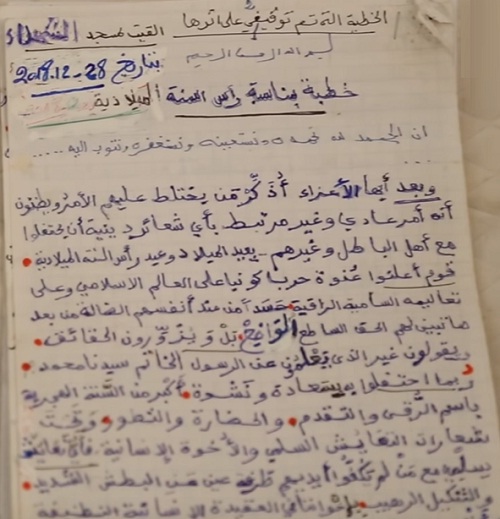 الخطبة التي تم توقيفي على اثرها القيت لمسجد الشهداء
بسم الله الرحمن الرحيم
بتاريخ 28-12-2018
خطبة بمناسبة رأس السنة الميلادية
ان الحمد لله نحمده ونستعينه ونستغفره ونتوب اليه .....
وبعد أيها الأعزاء أذكّر من يختلط عليهم الأمر ويظنون
أنه أمر عادي وغير مرتبط بأي شعائر دينية أن يحتفلوا
مع أهل الباطل وغيرهم - بعيد الميلاد وعيد رأس السنة الميلادية.
قوم أعلنوا عنوة حربا كونيا على العالم الاسلامي وعلى
تعاليمه السامية الراقية حسدا من عند أنفسهم الضالة من بعد
ما تبين لهم الحق الساطع الواضح بل ويزوّرون الحقائق.
ويقولون غير الذي يعلمون عن الرسول الخاتم سيدنا محمد.
ربما احتفلوا بسعادة ونشوة أكبر من السنة الهجرية
باسم الرقي والتقدم والحضارة والتطور وتحت
شعارات التعايش السلمي والأخوة الإنسانية.
مع من لم تكفوا أيديهم طرفة عين عن البطش الشديد.
والتنكيل الرهيب بإخواننا في العقيدة